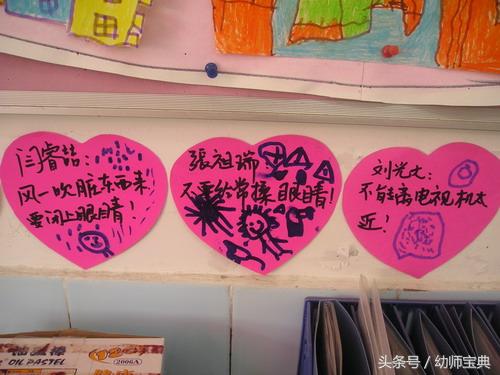 闫睿喆:
风一吹脏东西来!
要闭上眼睛!
張祖瑞
不要经常揉眼睛!
刘光大:
不能离电视机太
近!
油画棒
OIL PASTEL
2006A
头条号／幼师宝典